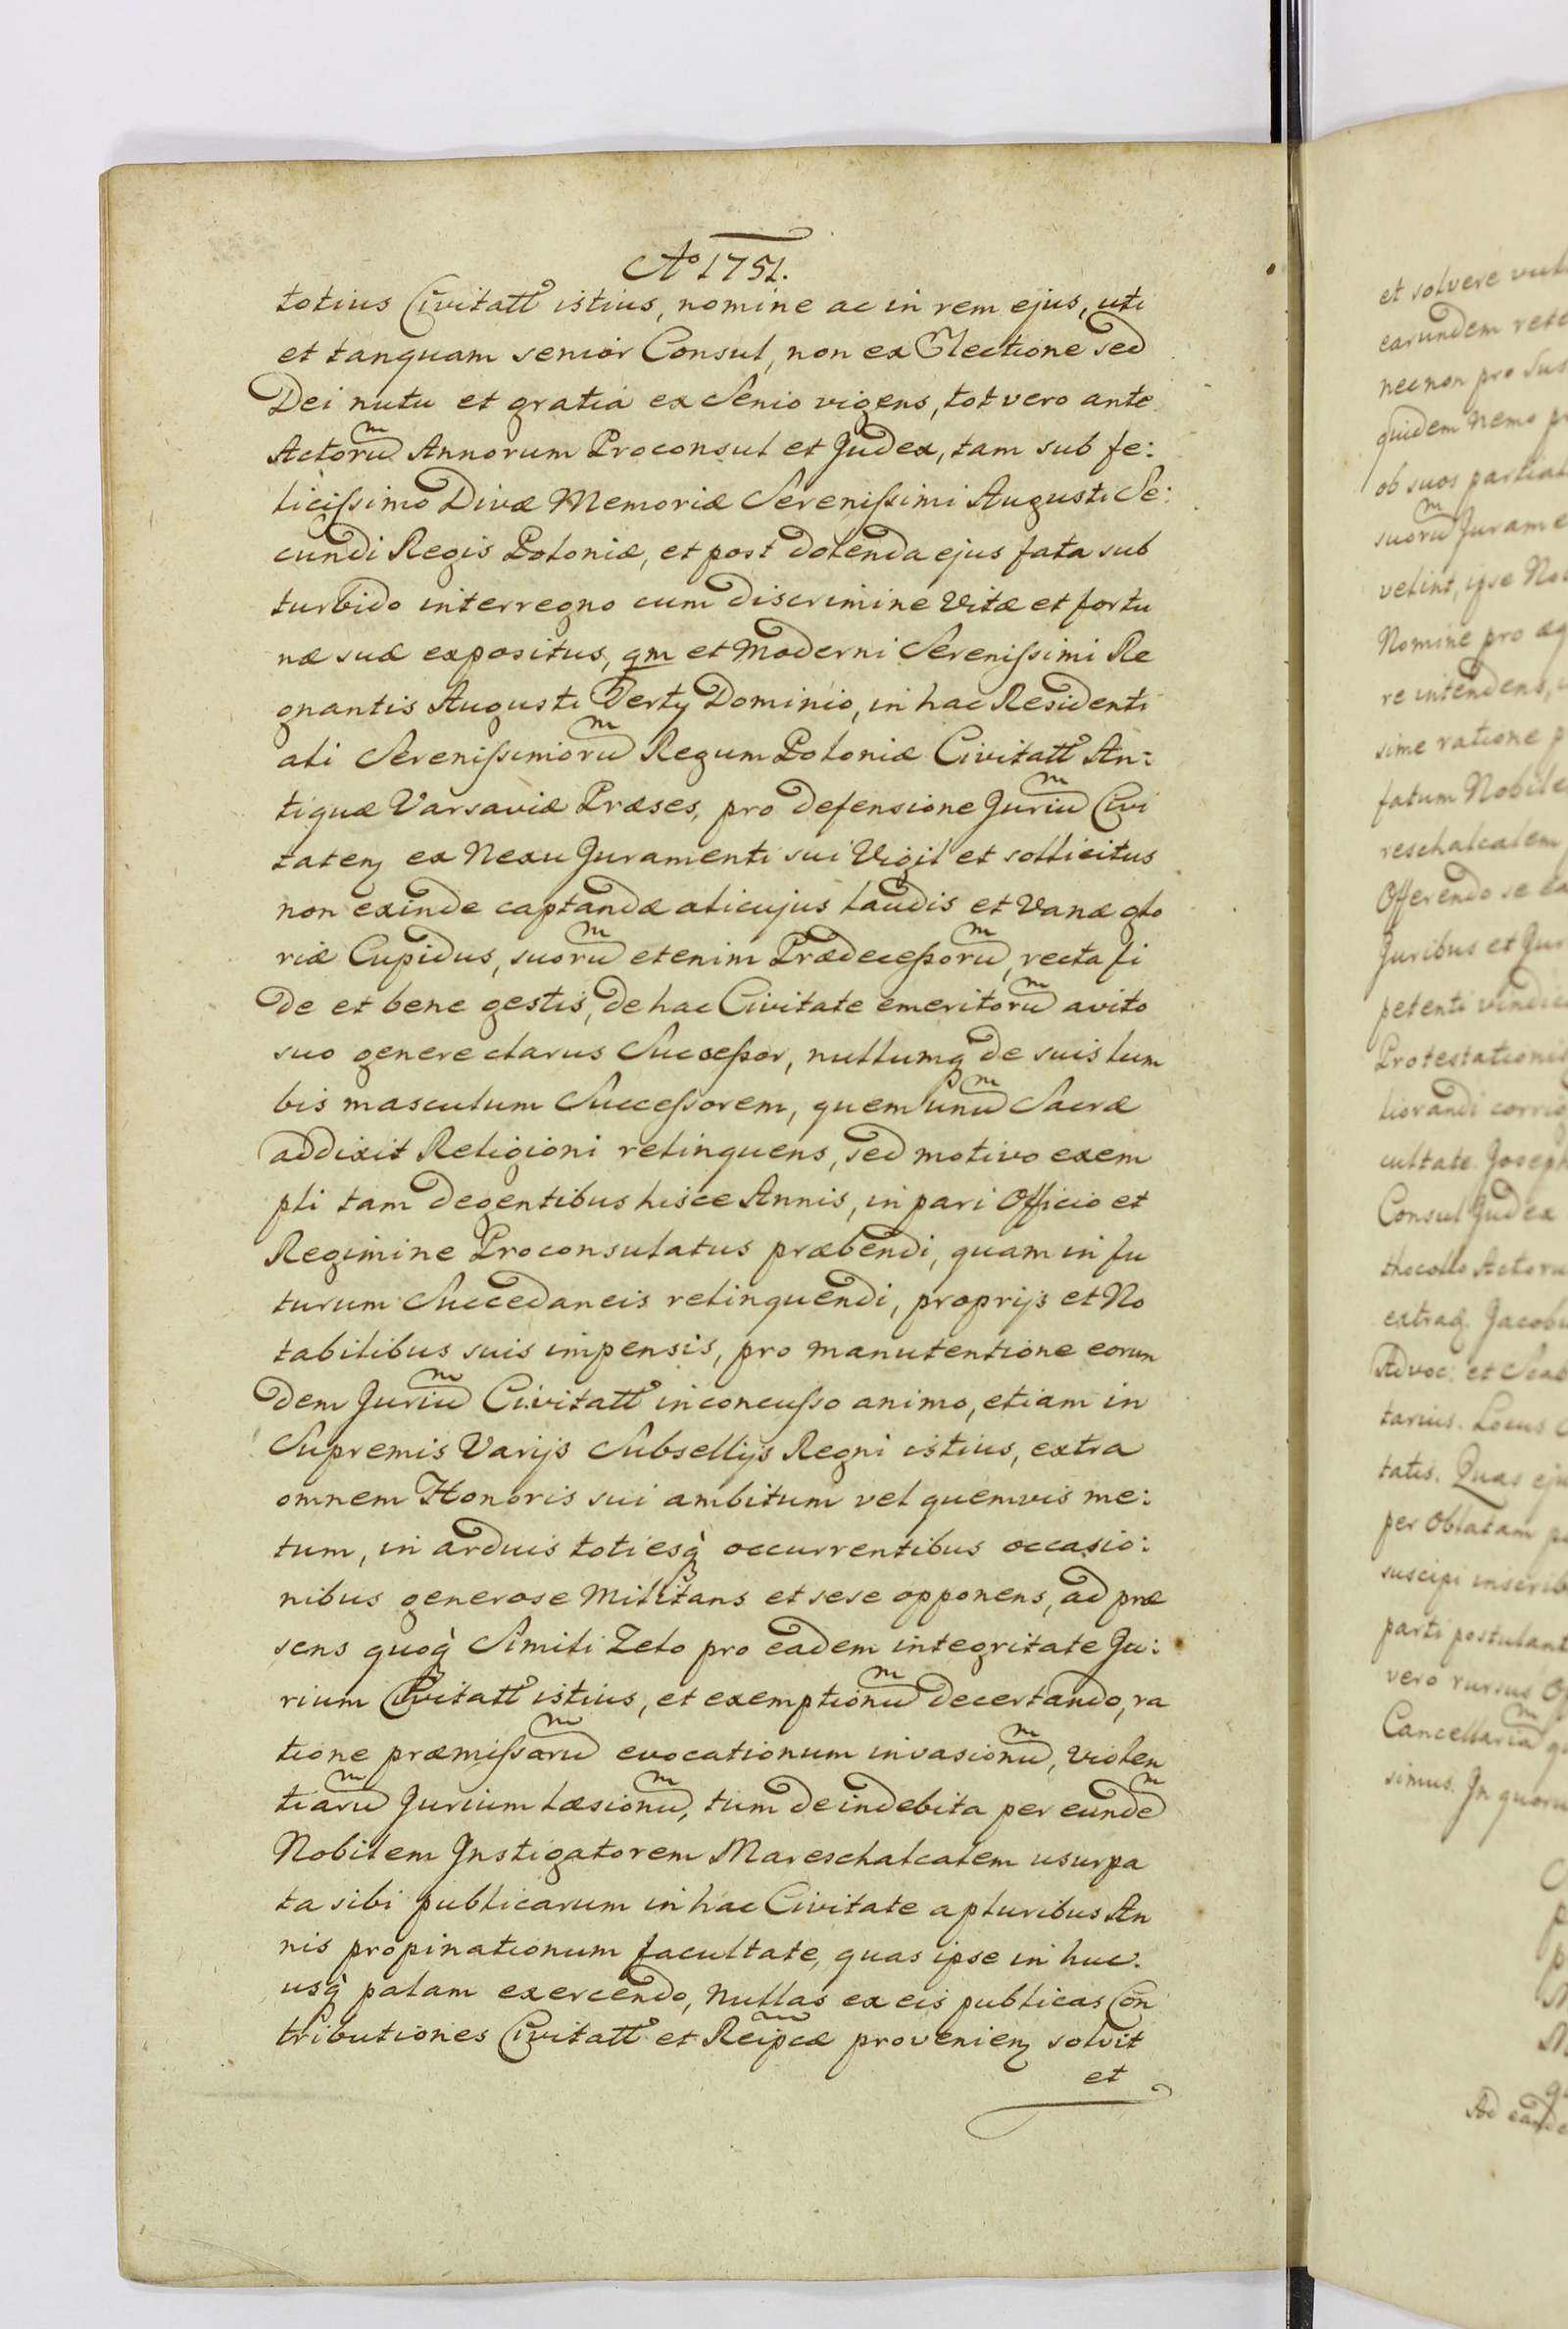 Ao 1751.
totius Civitatt istius, nomine ac in rem ejus, uti
et tanquam senior Consul, non ex Electione sed
Dei nutu et gratia ex Senio vigens, tot vero ante
Actorum Annorum Proconsul et Judex, tam sub fe:
licissimo Divæ Memoriæ Serenissimi Augusti Se:
cundi Regis Poloniæ, et post dolenda ejus fata sub
turbido interregno cum discrimine Vitæ et fortu
næ suæ expositus, qm et Moderni Serenissimi Re
gnantis Augusti Tertij Dominio, in hac Residenti
ali Serenissimorum Regum Poloniæ Civitatt An:
tiquæ Varsaviæ Præses, pro defensione Jurium Civi
taten ex Nexu Juramenti sui Vigil et sollicitus
non exinde captandæ alicujus laudis et Vanæ glo
riæ Cupidus, suorum etenim Prædecessorum, recta fi
de et bene gestis, de hac Civitate emeritorum avito
suo genere clarus Successor, nullumq de suis lum
bis masculum Successorem, quem unum Sacræ
addixit Religioni relinquens, sed motivo exem
pli tam degentibus hisce Annis, in pari Officio et
Regimine Proconsulatus præbendi, quam in fu
turum Succedaneis relinquendi, proprijs et No
tabilibus suis impensis, pro manutentione eorun
dem Jurium Civitatt inconcusso animo, etiam in
Supremis Varijs Subsellijs Regni istius, extra
omnem Honoris sui ambitum vel quemvis me:
tum, in arduis totiesq̀ occurrentibus occasio:
nibus generose Militans et sese opponens, ad præ
sens quoq̀ Simili Zelo pro eadem integritate Ju:
rium Civitatt istius, et exemptionum decertando, ra
tione præmissarum evocationum invasionum, violen
tiarum Jurium læsionum, tum de indebita per eundem
Nobilem Instigatorem Mareschalcalem usurpa
ta sibi publicarum in hac Civitate a pluribus An
nis propinationum facultate, quas ipse in huc.
usq̀ palam exercendo, Nullas ex eis publicas Con
tributiones Civitatt et Reipcæ provenien solvit
et
et solvere
earundem
necnon pro
quidem nemo
ob suos
suorum
velint, ipse
Nomine pro
re intendens,
sime ratione
fatum
reschalcalem
Offerendo se
Juribus et
petenti
Protestationis
liorandi
cultate.
Consul Judex
extraq. 
Advoc: et
tarius. Locus
tatis. Quas
per Oblatam
suscipi
parti
vero rursus
simus. In